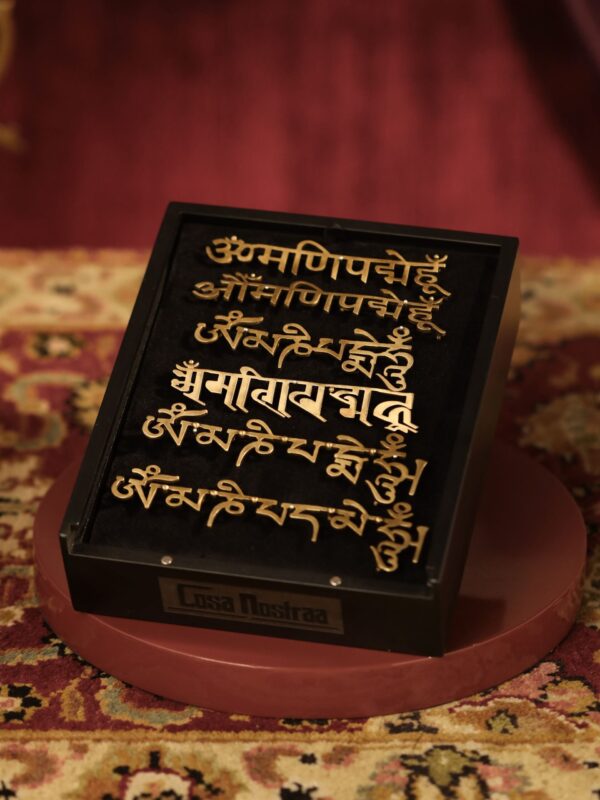 ॐमणिपद्मेहूँ
ओँमणिपद्मेहूँ
ཨོཾ་མ་ཎི་པདྨེ་ཧཱུྃ
ཨོཾ་མ་ཎི་པ་དྨེ་ཧཱུྃ
ཨོཾ་མ་ཎི་པ་ད་མེ་ཧཱུྃ
Cosa Nostraa